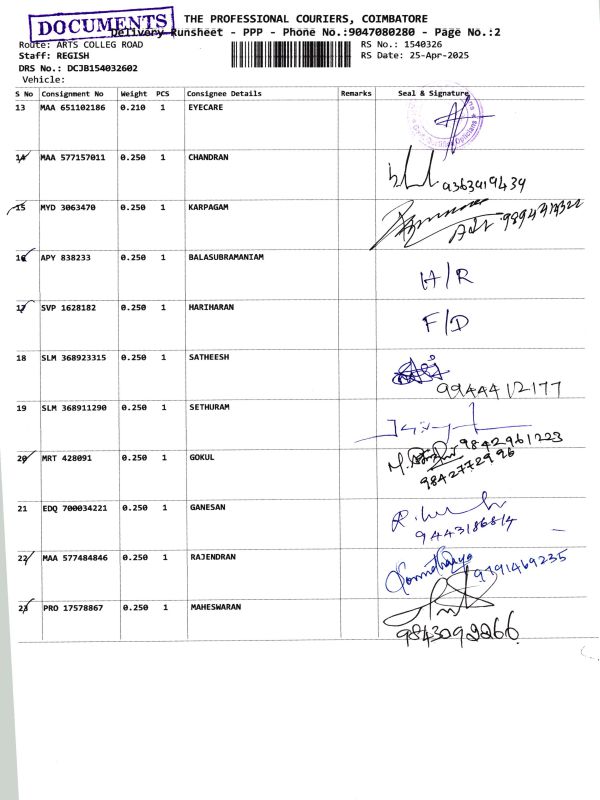 DOCUMENTS
THE PROFESSIONAL COURIERS, COIMBATORE
Delivery Runsheet - PPP - Phone No.:9047080280 - Page No.:2
Route: ARTS COLLEG ROAD RS No.: 1540326
Staff: REGISH RS Date: 25-Apr-2025
DRS No.: DCJB154032602
Vehicle:
S No Consignment No Weight PCS Consignee Details Remarks Seal & Signature
13 MAA 651102186 0.210 1 EYECARE
14 MAA 577157011 0.250 1 CHANDRAN 9363419439
15 MYD 3063470 0.250 1 KARPAGAM
16 APY 838233 0.250 1 BALASUBRAMANIAM H/R
17 SVP 1628182 0.250 1 HARIHARAN F/D
18 SLM 368923315 0.250 1 SATHEESH 9944412177
19 SLM 368911290 0.250 1 SETHURAM 9842961223
20 MRT 428091 0.250 1 GOKUL 9842772996
21 EDQ 700034221 0.250 1 GANESAN 9443186814
22 MAA 577484846 0.250 1 RAJENDRAN 9791469235
23 PRO 17578867 0.250 1 MAHESWARAN 9843092266